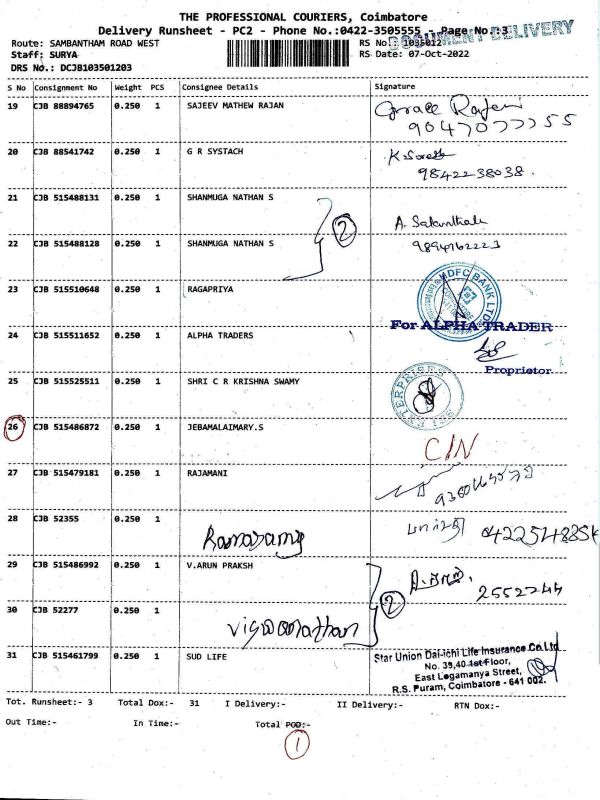 THE PROFESSIONAL COURIERS, Coimbatore
Delivery Runsheet - PC2 - Phone No.:0422-3505555 Page No.:3
DOCUMENT DELIVERY
Route: SAMBANTHAM ROAD WEST RS No.: 1035012
Staff: SURYA RS Date: 07-Oct-2022
DRS No.: DCJB103501203
S No Consignment No Weight PCS Consignee Details Signature
19 CJB 88894765 0.250 1 SAJEEV MATHEW RAJAN Grace Rajan
9047077755
20 CJB 88541742 0.250 1 G R SYSTACH K. Suresh
9842238038.
21 CJB 515488131 0.250 1 SHANMUGA NATHAN S
2 A.
22 CJB 515488128 0.250 1 SHANMUGA NATHAN S 9894762223
23 CJB 515510648 0.250 1 RAGAPRIYA HDFC BANK LTD
For ALPHA TRADER
24 CJB 515511652 0.250 1 ALPHA TRADERS
Proprietor
25 CJB 515525511 0.250 1 SHRI C R KRISHNA SWAMY
26 CJB 515486872 0.250 1 JEBAMALAIMARY.S
C/N
27 CJB 515479181 0.250 1 RAJAMANI
28 CJB 52355 0.250 1
Ramasamy
29 CJB 515486992 0.250 1 V.ARUN PRAKSH
2 2552744
30 CJB 52277 0.250 1
Viswanathan
31 CJB 515461799 0.250 1 SUD LIFE Star Union Dai-ichi Life Insurance Co.Ltd
No. 39,40 1st Floor,
East Logamanya Street,
R.S. Puram, Coimbatore - 641 002.
Tot. Runsheet:- 3 Total Dox:- 31 I Delivery:- II Delivery:- RTN Dox:-
Out Time:- In Time:- Total POD:-
1